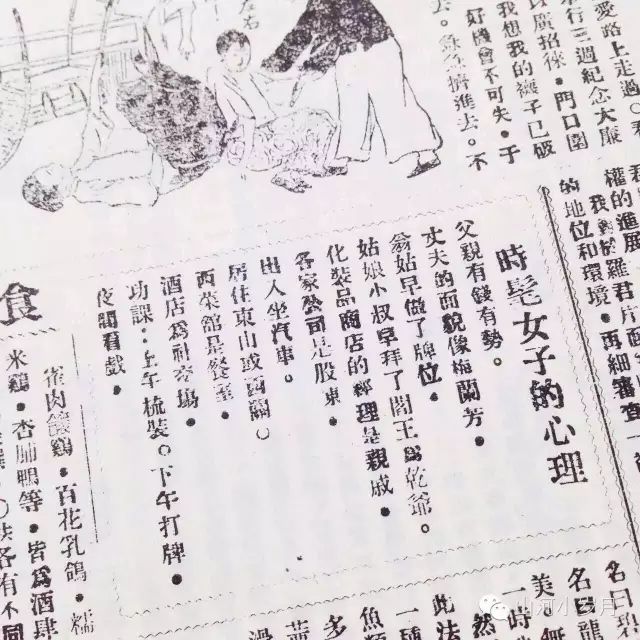 愛路上走過
行三週紀念大廉
以廣招徠。門口圍
我想我的襪子已破
好機會不可失。于
擠進去。不
權的進展
的地位和環境。再細審查一
時髦女子的心理
父親有錢有勢。
丈夫的面貌像梅蘭芳。
翁姑早做了牌位。
姑娘小叔早拜了閻王爲乾爺。
化裝品商店的經理是親戚。
各家公司是股東。
出入坐汽車。
居住東山或西關。
西菜館是餐室。
酒店爲社交場。
功課：上午梳裝。下午打牌。
夜間看戲。
食
雀肉釀鷄。百花乳鴿。糯
米鷄。杏肺鴨等。皆爲酒肆
各有不同
名曰
名曰龍
美
一時
然
此法
一種
魚類
多
山河小歲月